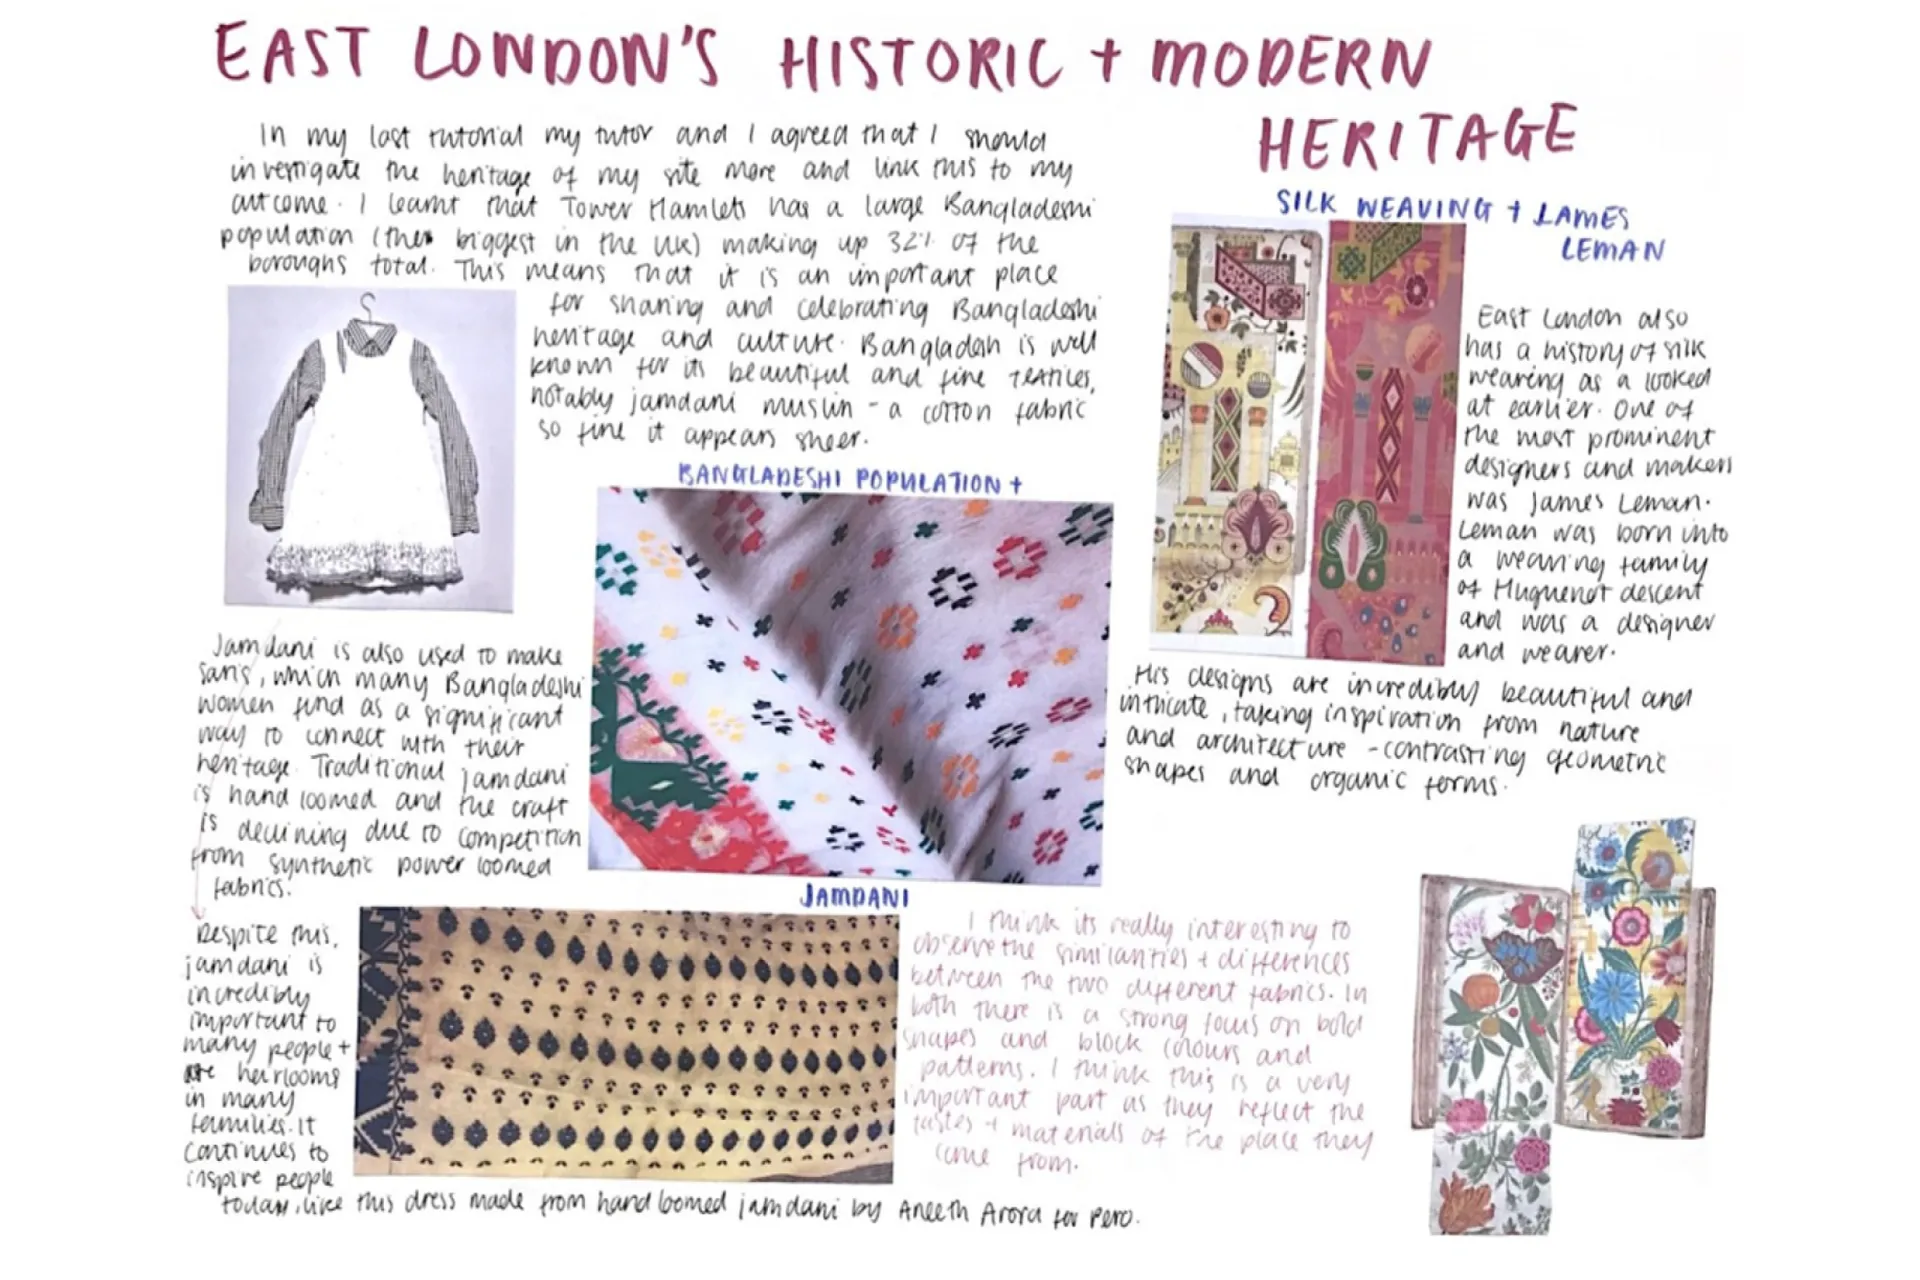 EAST LONDON'S HISTORIC + MODERN
HERITAGE
In my last tutorial my tutor and I agreed that I should
investigate the heritage of my site more and link this to my
outcome. I learnt that Tower Hamlets has a large Bangladeshi
population (the biggest in the UK) making up 32% of the
boroughs total. This means that it is an important place
for sharing and celebrating Bangladeshi
heritage and culture. Bangladesh is well
known for its beautiful and fine textiles,
notably jamdani muslin - a cotton fabric
so fine it appears sheer.
BANGLADESHI POPULATION +
JAMDANI
Jamdani is also used to make
saris, which many Bangladeshi
women find as a significant
way to connect with their
heritage. Traditional jamdani
is hand loomed and the craft
is declining due to competition
from synthetic power loomed
fabrics.
Despite this,
jamdani is
incredibly
important to
many people +
are heirlooms
in many
families. It
continues to
inspire people
today, like this dress made from hand loomed jamdani by Aneeth Arora for Pero.
SILK WEAVING + JAMES
LEMAN
East London also
has a history of silk
weaving as a looked
at earlier. One of
the most prominent
designers and makers
was James Leman.
Leman was born into
a weaving family
of Huguenot descent
and was a designer
and weaver.
His designs are incredibly beautiful and
intricate, taking inspiration from nature
and architecture - contrasting geometric
shapes and organic forms.
I think its really interesting to
observe the similarities + differences
between the two different fabrics. In
both there is a strong focus on bold
shapes and block colours and
patterns. I think this is a very
important part as they reflect the
tastes + materials of the place they
come from.